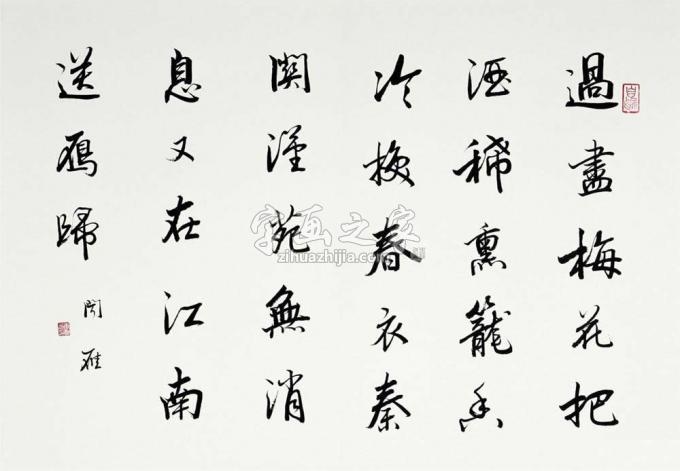 過盡梅花把
酒稀熏籠香
冷換春衣秦
関漢苑無消
息又在江南
送鴈歸
聞雁
字画之家
zihuazhijia.com